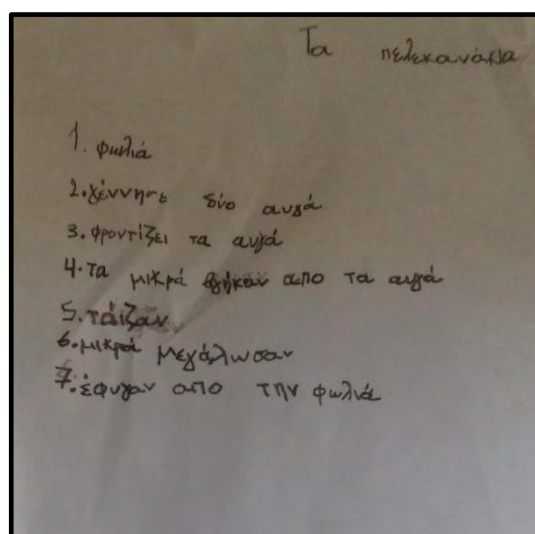 Τα πελεκανάκια
1. φωλιά
2. γέννησε δύο αυγά
3. φροντίζει τα αυγά
4. τα μικρά βγήκαν απο τα αυγά
5. τάιζαν
6. μικρά μεγάλωσαν
7. έφυγαν απο την φωλιά